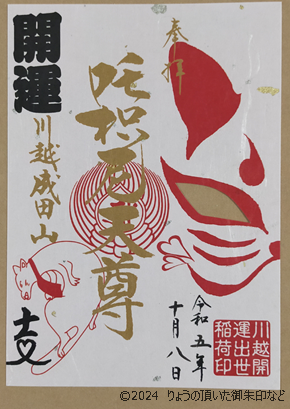 奉拝
開運
吒枳尼天尊
川越成田山
令和五年
十月八日
川越開
運出世
稲荷印
©2024 りょうの頂いた御朱印など